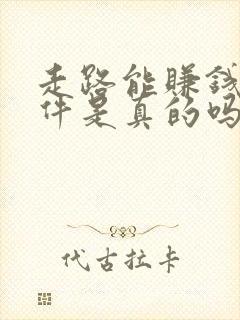 走路能赚钱
件是真的吗
代古拉卡